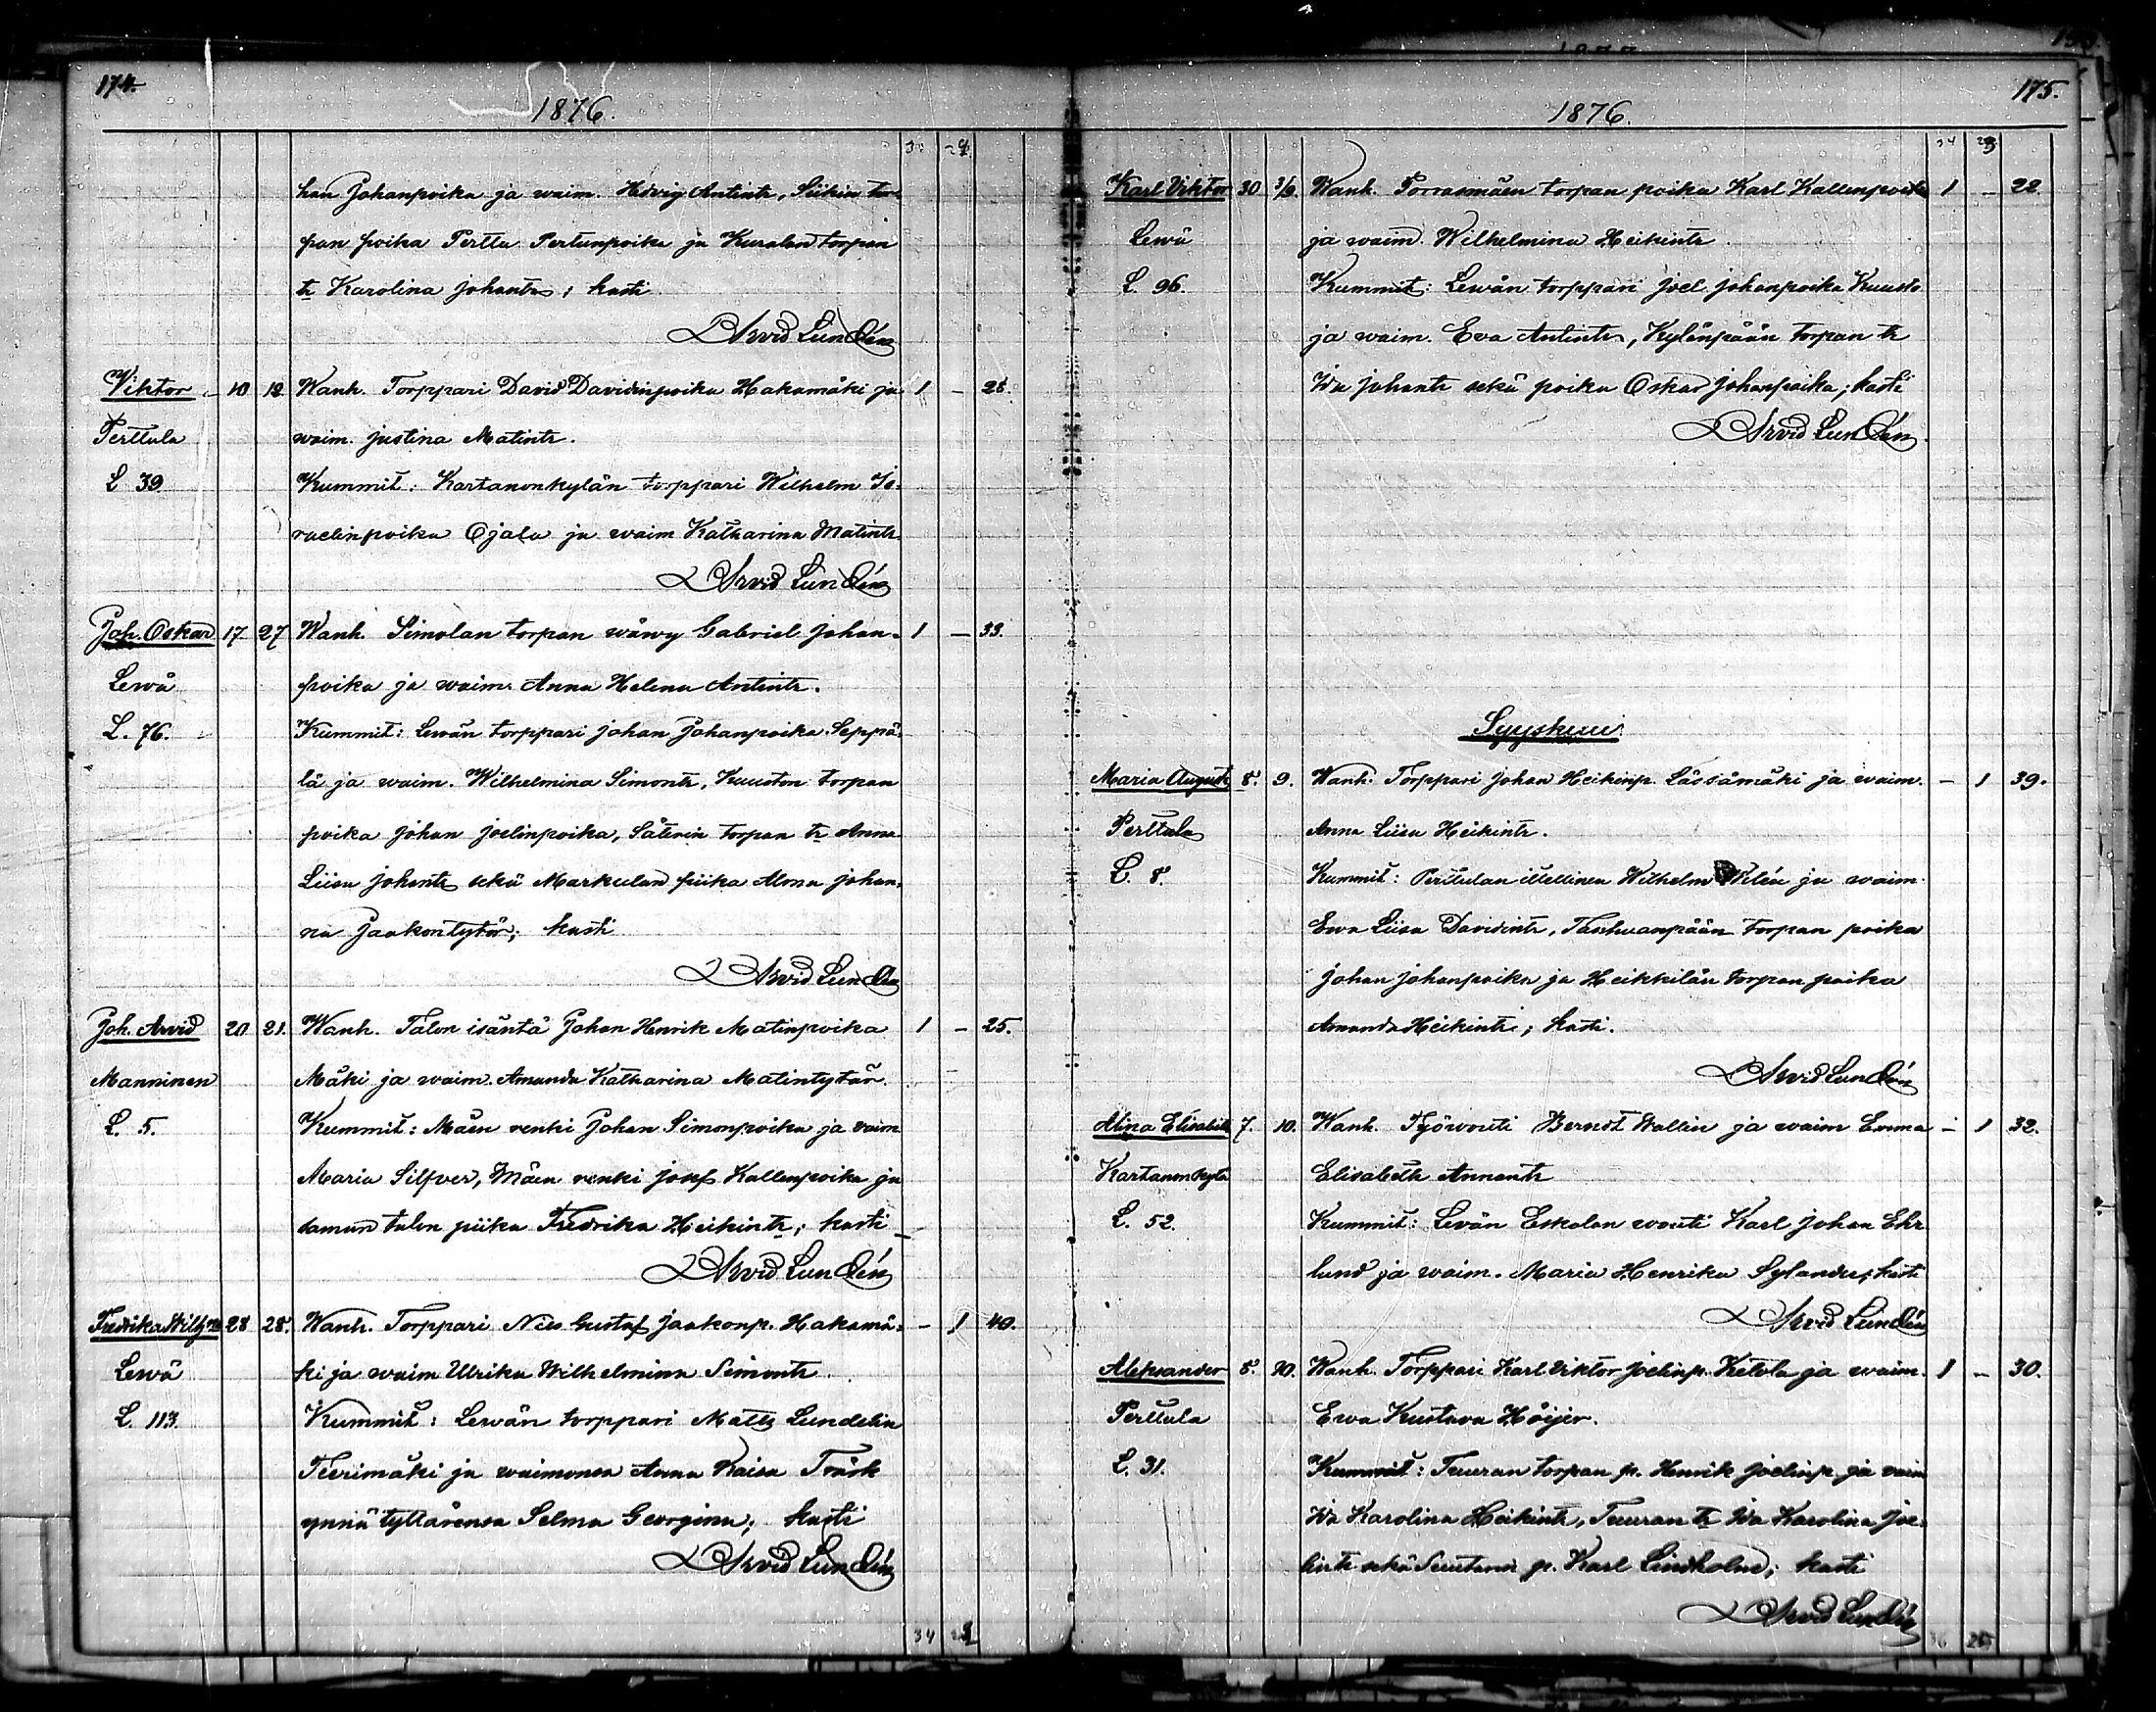 174.
1876.
han Johanpoika ja waim. Hedvig Antintr, Siikin tor-
pan poika Perttu Pertunpoika ja Kuralan torpan
tr Karolina Johantr; kasti
Arvid Lundén
Viktor 10 12 Wanh. Torppari David Davidinpoika Hakamäki ja 1 –
Perttula waim. Justina Matintr.
L 39. Kummit: Kartanonkylän torppari Wilhelm Is-
raelinpoika Ojala ja waim Katharina Matintr.
Arvid Lundén
Joh. Oskar 17 27 Wanh. Simolan torpan wäwy Gabriel Johan- 1 – 33.
Lewä poika ja waim. Anna Helena Antintr.
L. 76. Kummit: Lewän torppari Johan Johanpoika Seppä-
lä ja waim. Wilhelmina Simontr, Kuuston torpan
poika Johan Joelinpoika, Säterin torpan tr Anna
Liisa Johantr sekä Markulan piika Alma Johan-
na Jaakontytär; kasti
Arvid Lundén
Joh. Arvid 20 21. Wanh. Talon isäntä Johan Henrik Matinpoika 1 – 25.
Manninen Mäki ja waim. Amanda Katharina Matintytär.
L. 5. Kummit: Mäen renki Johan Simonpoika ja waim
Maria Silfver, Mäen renki Josef Kallenpoika ja
saman talon piika Fredrika Heikintr; kasti
Arvid Lundén
Fredrika Wilh:na 28 28. Wanh. Torppari Nils Gustaf Jaakonp. Hakamä- – 1 40.
Lewä ki ja waim Ulrika Wilhelmina Simontr.
L. 113. Kummit: Lewän torppari Matts Lundelin
Teerimäki ja waimonsa Anna Kaisa Träsk
ynnä tyttärensa Selma Georgina; kasti
Arvid Lundén
34
175.
1876.
34
Karl Viktor 30 3/9. Wanh. Porrasmäen torpan poika Karl Kallenpoika 1 – 22.
Lewä ja waim. Wilhelmina Heikintr.
L. 96. Kummit: Lewän torppari Joel Johanpoika Kuusto
ja waim. Eva Antintr, Kylänpään torpan tr
Ida Johantr sekä poika Oskar Johanpoika; kasti
Arvid Lundén
Syyskuu
Maria Augusta 8. 9. Wanh. Torppari Johan Heikinp. Lässämäki ja waim. – 1 39.
Perttula Anna Liisa Heikintr.
L. 8. Kummit: Perttulan itellinen Wilhelm Wilén ja waim
Ewa Liisa Davidintr, Tanhuanpään torpan poika
Johan Johanpoika ja Heikkilän torpan poika
Amanda Heikintr; kasti.
Arvid Lundén
Alina Elisabeth 7. 10. Wanh. Työwouti Berndt Wallin ja waim Emma – 1 32.
Kartanonkylä Elisabeth Annantr
L. 52. Kummit: Lewän Eskolan wouti Karl Johan Ehr
lund ja waim. Maria Henrika Sylander; kasti
Arvid Lundén
Aleksander 8. 10. Wanh. Torppari Karl Viktor Joelinp. Ketola ja waim. 1 – 30.
Perttula Ewa Kustava Höijer.
L. 31. Kummit: Tuuran torpan p. Henrik Joelinp. ja waim
Ida Karolina Heikintr, Tuuran tr Ida Karolina Joe-
lintr sekä Suutarin p. Karl Lindholm; kasti
Arvid Lundén